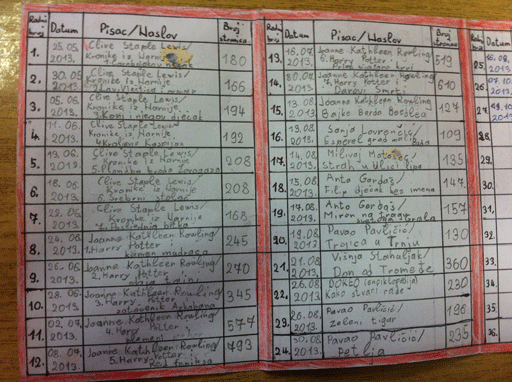 Redni broj Datum Pisac/Naslov Broj stranica
1. 25.05. 2013. Clive Staple Lewis/ 180
Kronike iz Narnije
2. 30.05. 2013. Clive Staple Lewis/ 166
Kronike iz Narnije
3. 05.06. 2013. Clive Staple Lewis/ 194
Kronike iz Narnije
3. Konj i njegov dječak
4. 11.06. 2013. Clive Staple Lewis/ 192
Kronike iz Narnije
5. 13.06. 2013. Clive Staple Lewis/ 208
Kronike iz Narnije
6. 18.06. 2013. Clive Staple Lewis/ 208
Kronike iz Narnije
6. Srebrni stolac
7. 22.06. 2013. Clive Staple Lewis/ 168
Kronike iz Narnije
7. Posljednja bitka
8. 24.06. 2013. Joanne Kathleen Rowling/ 245
1. Harry Potter
kamen mudraca
9. 26.06. 2013. Joanne Kathleen Rowling/ 270
2. Harry Potter
odaja tajni
10. 28.06. 2013. Joanne Kathleen Rowling/ 345
3. Harry Potter
zatočenik Azkabana
11. 02.07. 2013. Joanne Kathleen Rowling/ 577
4. Harry Potter
plameni
12. 08.07. 2013. Joanne Kathleen Rowling/ 793
5. Harry Potter
Red feniksa
Redni broj Datum Pisac/Naslov Broj stranica
13. 16.07. 2013. Joanne Kathleen Rowling/ 519
6. Harry Potter
Princ miješane krvi
14. 2013. Joanne Kathleen Rowling/ 610
7. Harry Potter
Darovi Smrti
15. 13.08. 2013. Joanne Kathleen Rowling 127
Bajke Barda Beedlea
16. 13.08. 2013. Sanja Lovrenčić/ 109
Esperel grad
17. 14.08. 2013. Milivoj Matošec/ 135
Strah u Ulici lipa
18. 15.08. 2013. Anto Gardaš/ 147
Filip dječak bez imena
19. 17.08. 2013. Anto Gardaš/ 157
Miron na tragu
20. 19.08. 2013. Pavao Pavličić/ 130
Trojica u Trnju
21. 21.08. 2013. Višnja Stahuljak/ 360
Don od Tromeđe
22. 26.08. 2013. (enciklopedija) 230
Kako stvari rade
23. 26.08. 2013. Pavao Pavličić/ 196
zeleni tigar
24. 30.08. 2013. Pavao Pavličić/ 235
petlja
Redni broj Datum
25.
26.
27.
28.
29.
30.
31.
32.
33.
34.
35.
36.